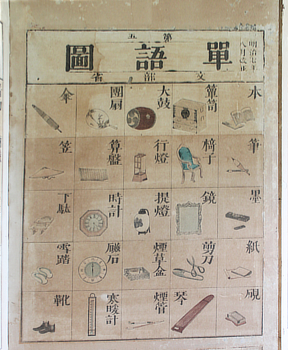 第五
單語圖
文部省
明治七年八月改正
本
筆
墨
紙
硯
簞笥
椅子
鏡
剪刀
琴
大鼓
行燈
提燈
煙草盆
煙管
團扇
算盤
時計
磁石
寒暖計
傘
笠
下駄
雪踏
靴